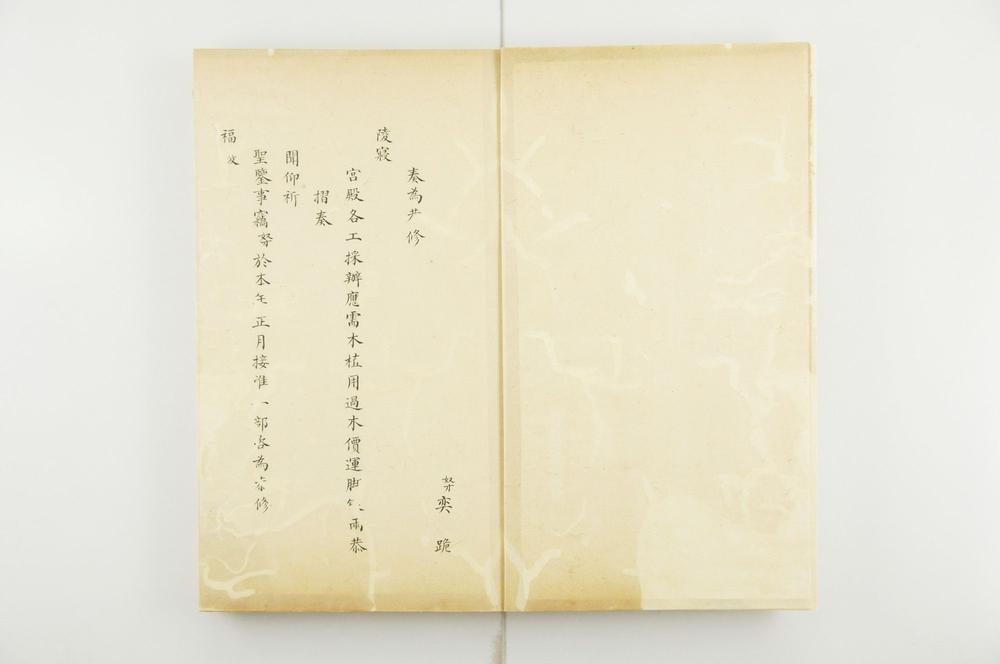 奴才奕　跪
奏為　修
陵寢
宮殿各工採辦應需木植用過木價運脚　兩恭
摺奏
聞仰祈
聖鑒事竊奴才於本年正月接准　部咨為　修
福